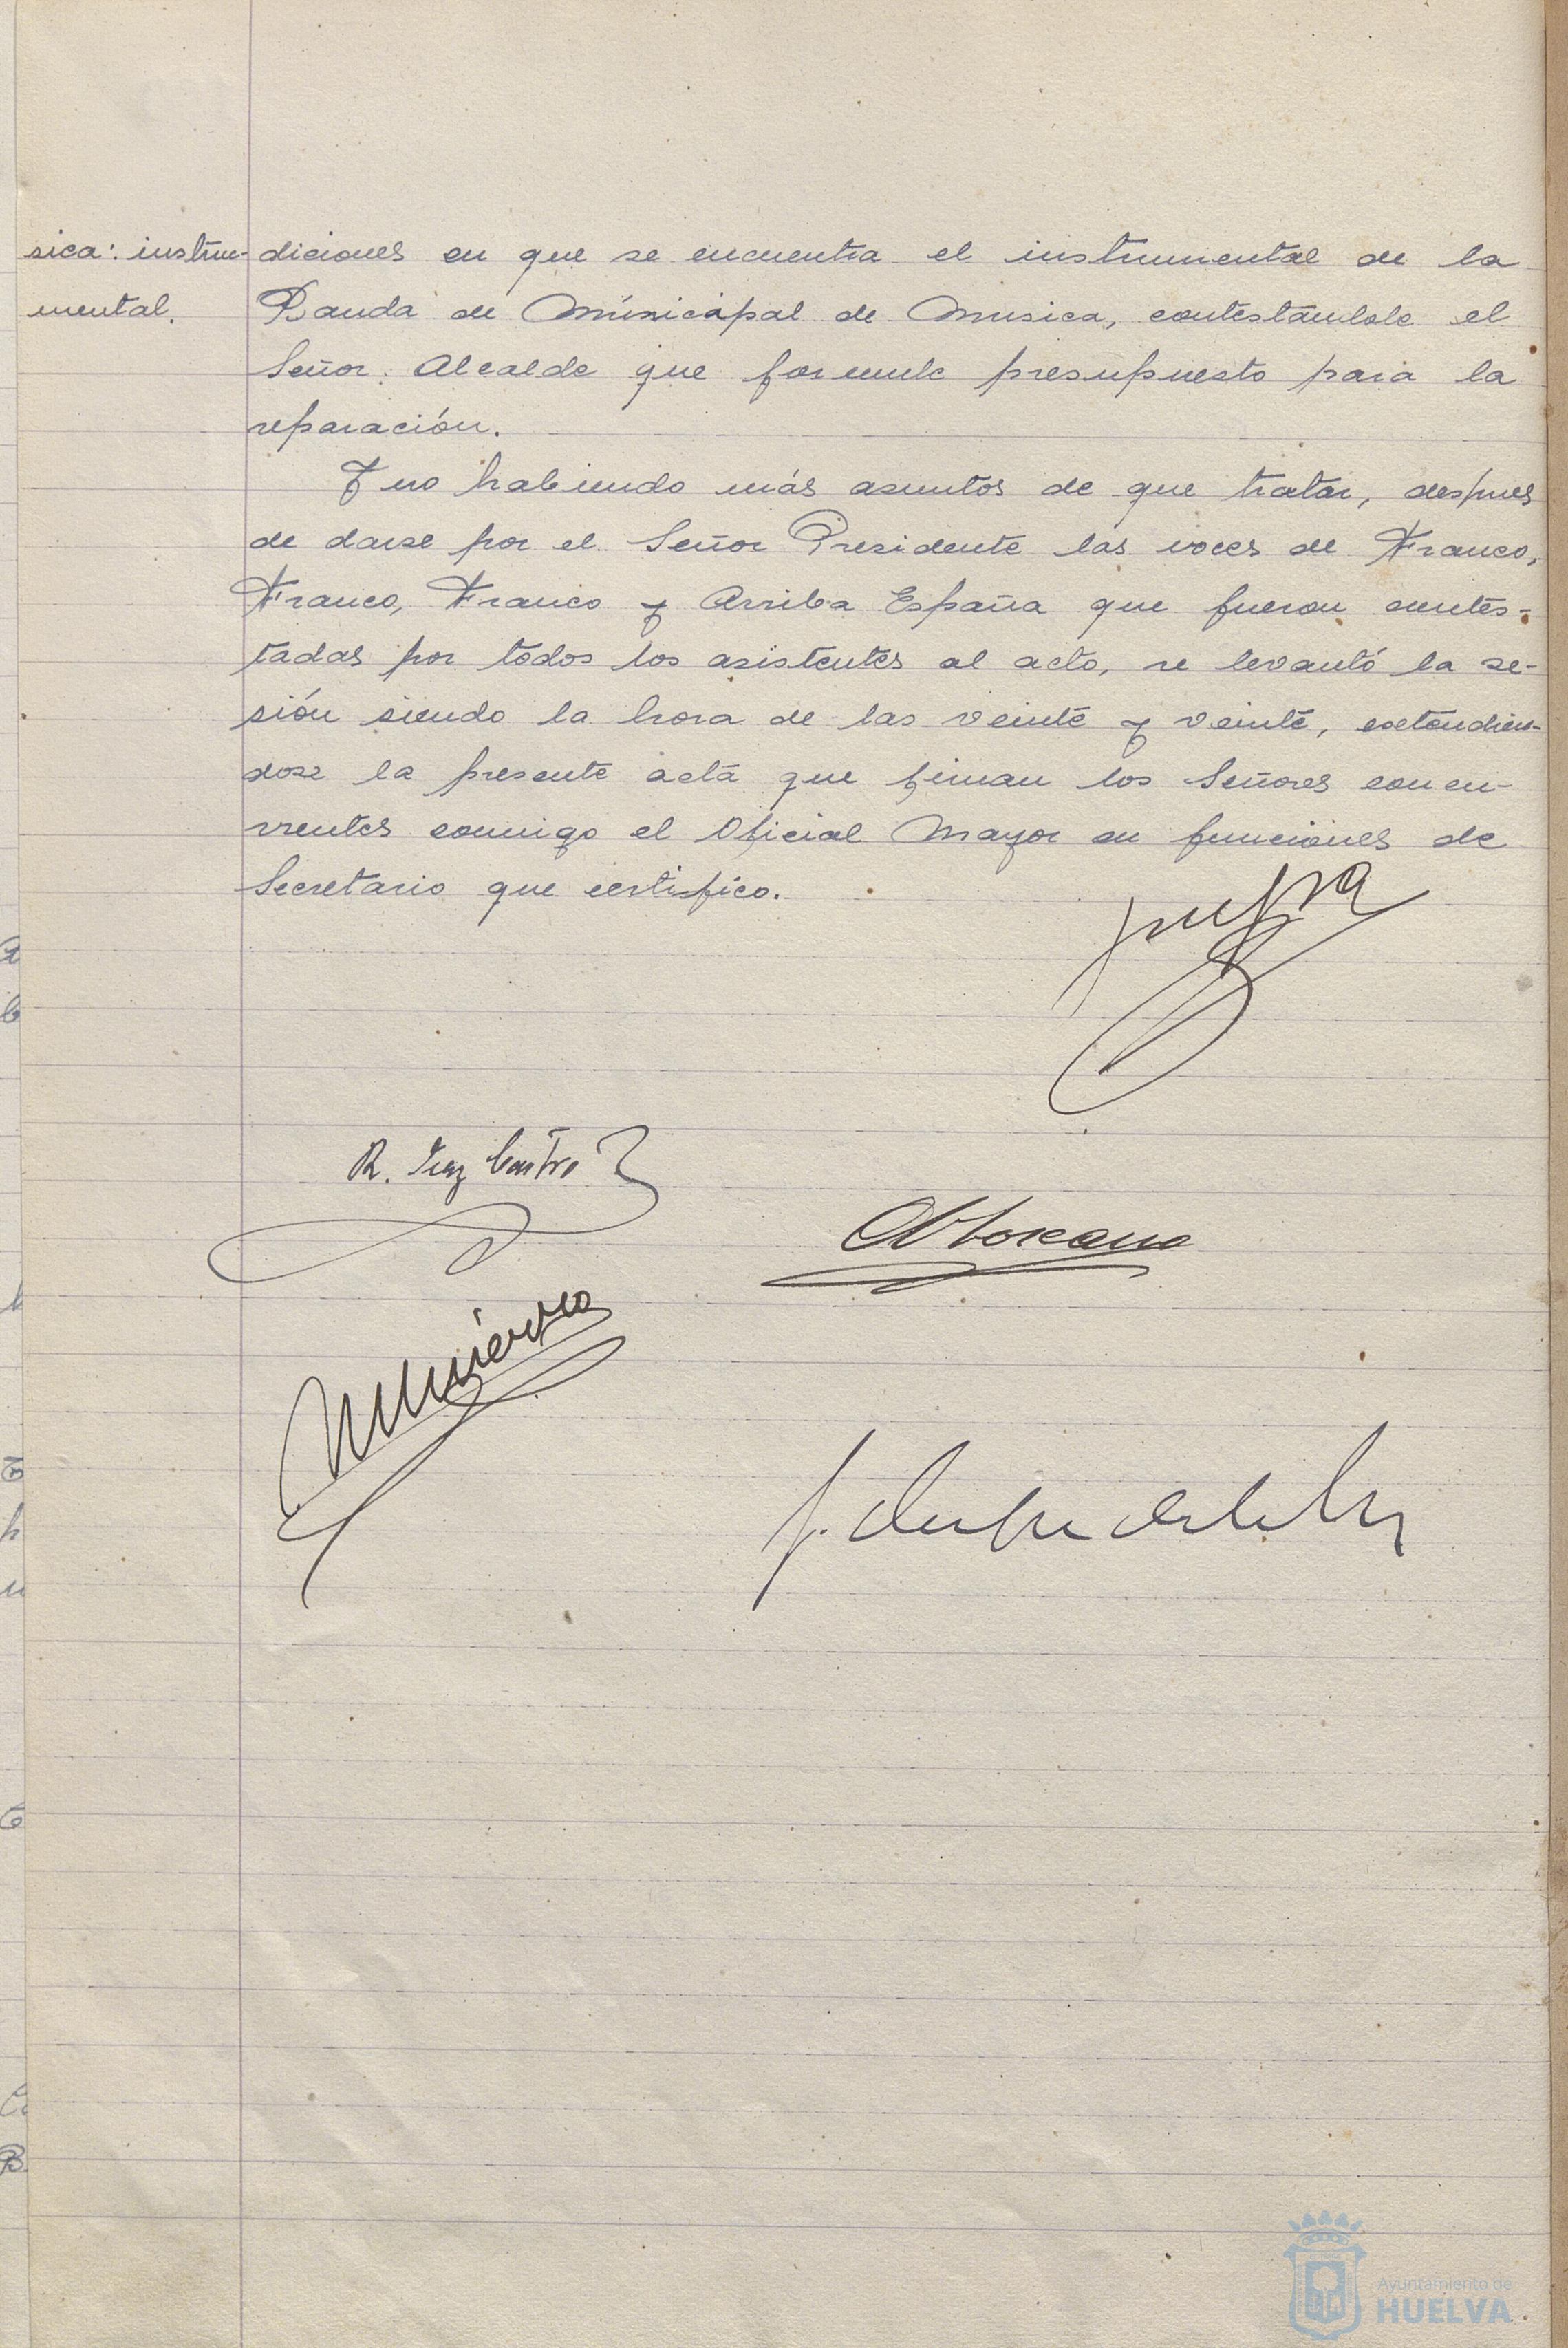 sica: instru-
mental.
diciones en que se encuentra el instrumental de la
Banda de Múnicipal de Musica, contestándole el
Señor Alcalde que formule presupuesto para la
reparación.
Y no habiendo más asuntos de que tratar, despues
de darse por el Señor Presidente las voces de Franco,
Franco, Franco y Arriba España que fueron contes-
tadas por todos los asistentes al acto, se levantó la se-
sión siendo la hora de las veinte y veinte, extendién-
dose la presente acta que firman los Señores concu-
rrentes conmigo el Oficial Mayor en funciones de
Secretario que certifico.
R. Castro
Ayuntamiento de
HUELVA